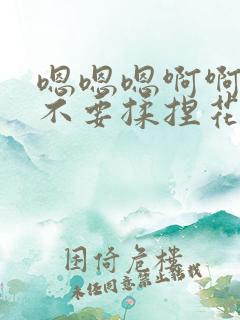 嗯嗯嗯啊啊
不要揉捏花
困倚危楼
未经同意禁止转载